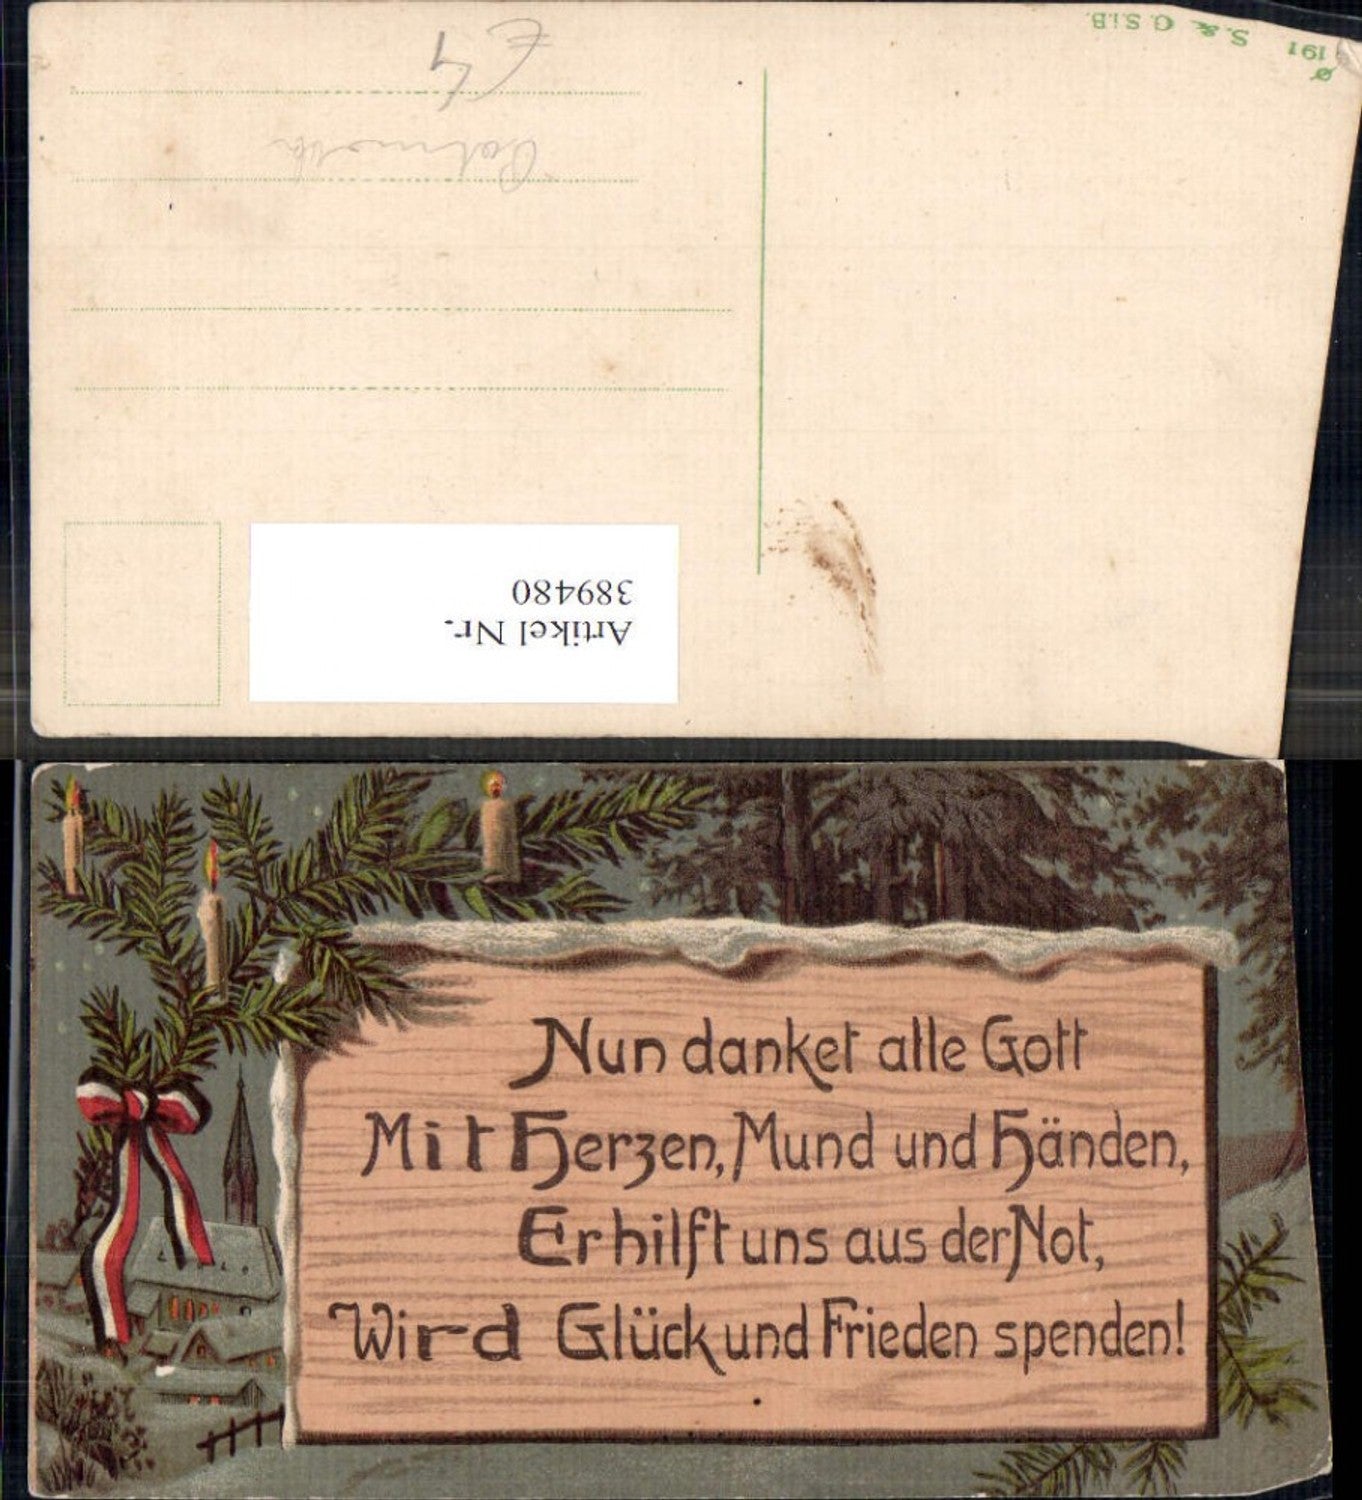 € 4
Artikel Nr.
389480
191 S. & G. S. i. B.
Nun danket alle Gott
Mit Herzen, Mund und Händen,
Er hilft uns aus der Not,
Wird Glück und Frieden spenden!